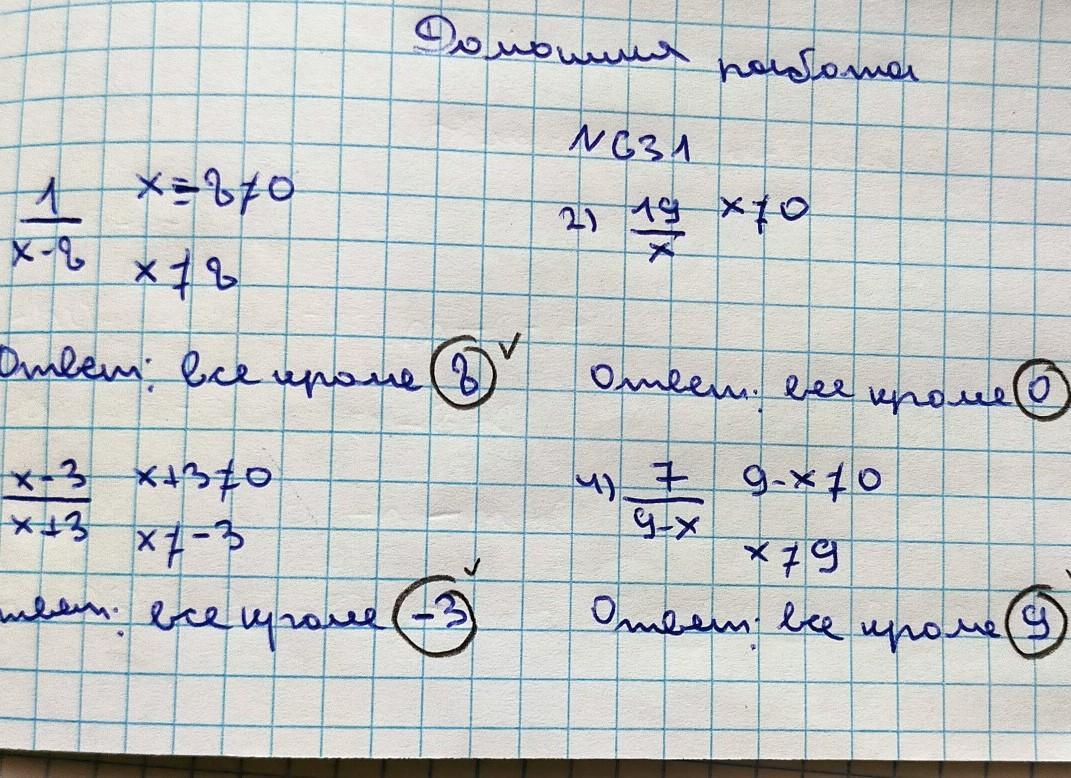 Домошния работа
N631
1/(x-8) x-8≠0
x≠8
2) 19/x x≠0
Ответ: все кроме 8 ✓
Ответ: все кроме 0
(x-3)/(x+3) x+3≠0
x≠-3
4) 7/(9-x) 9-x≠0
x≠9
твет: все кроме -3 ✓
Ответ: все кроме 9